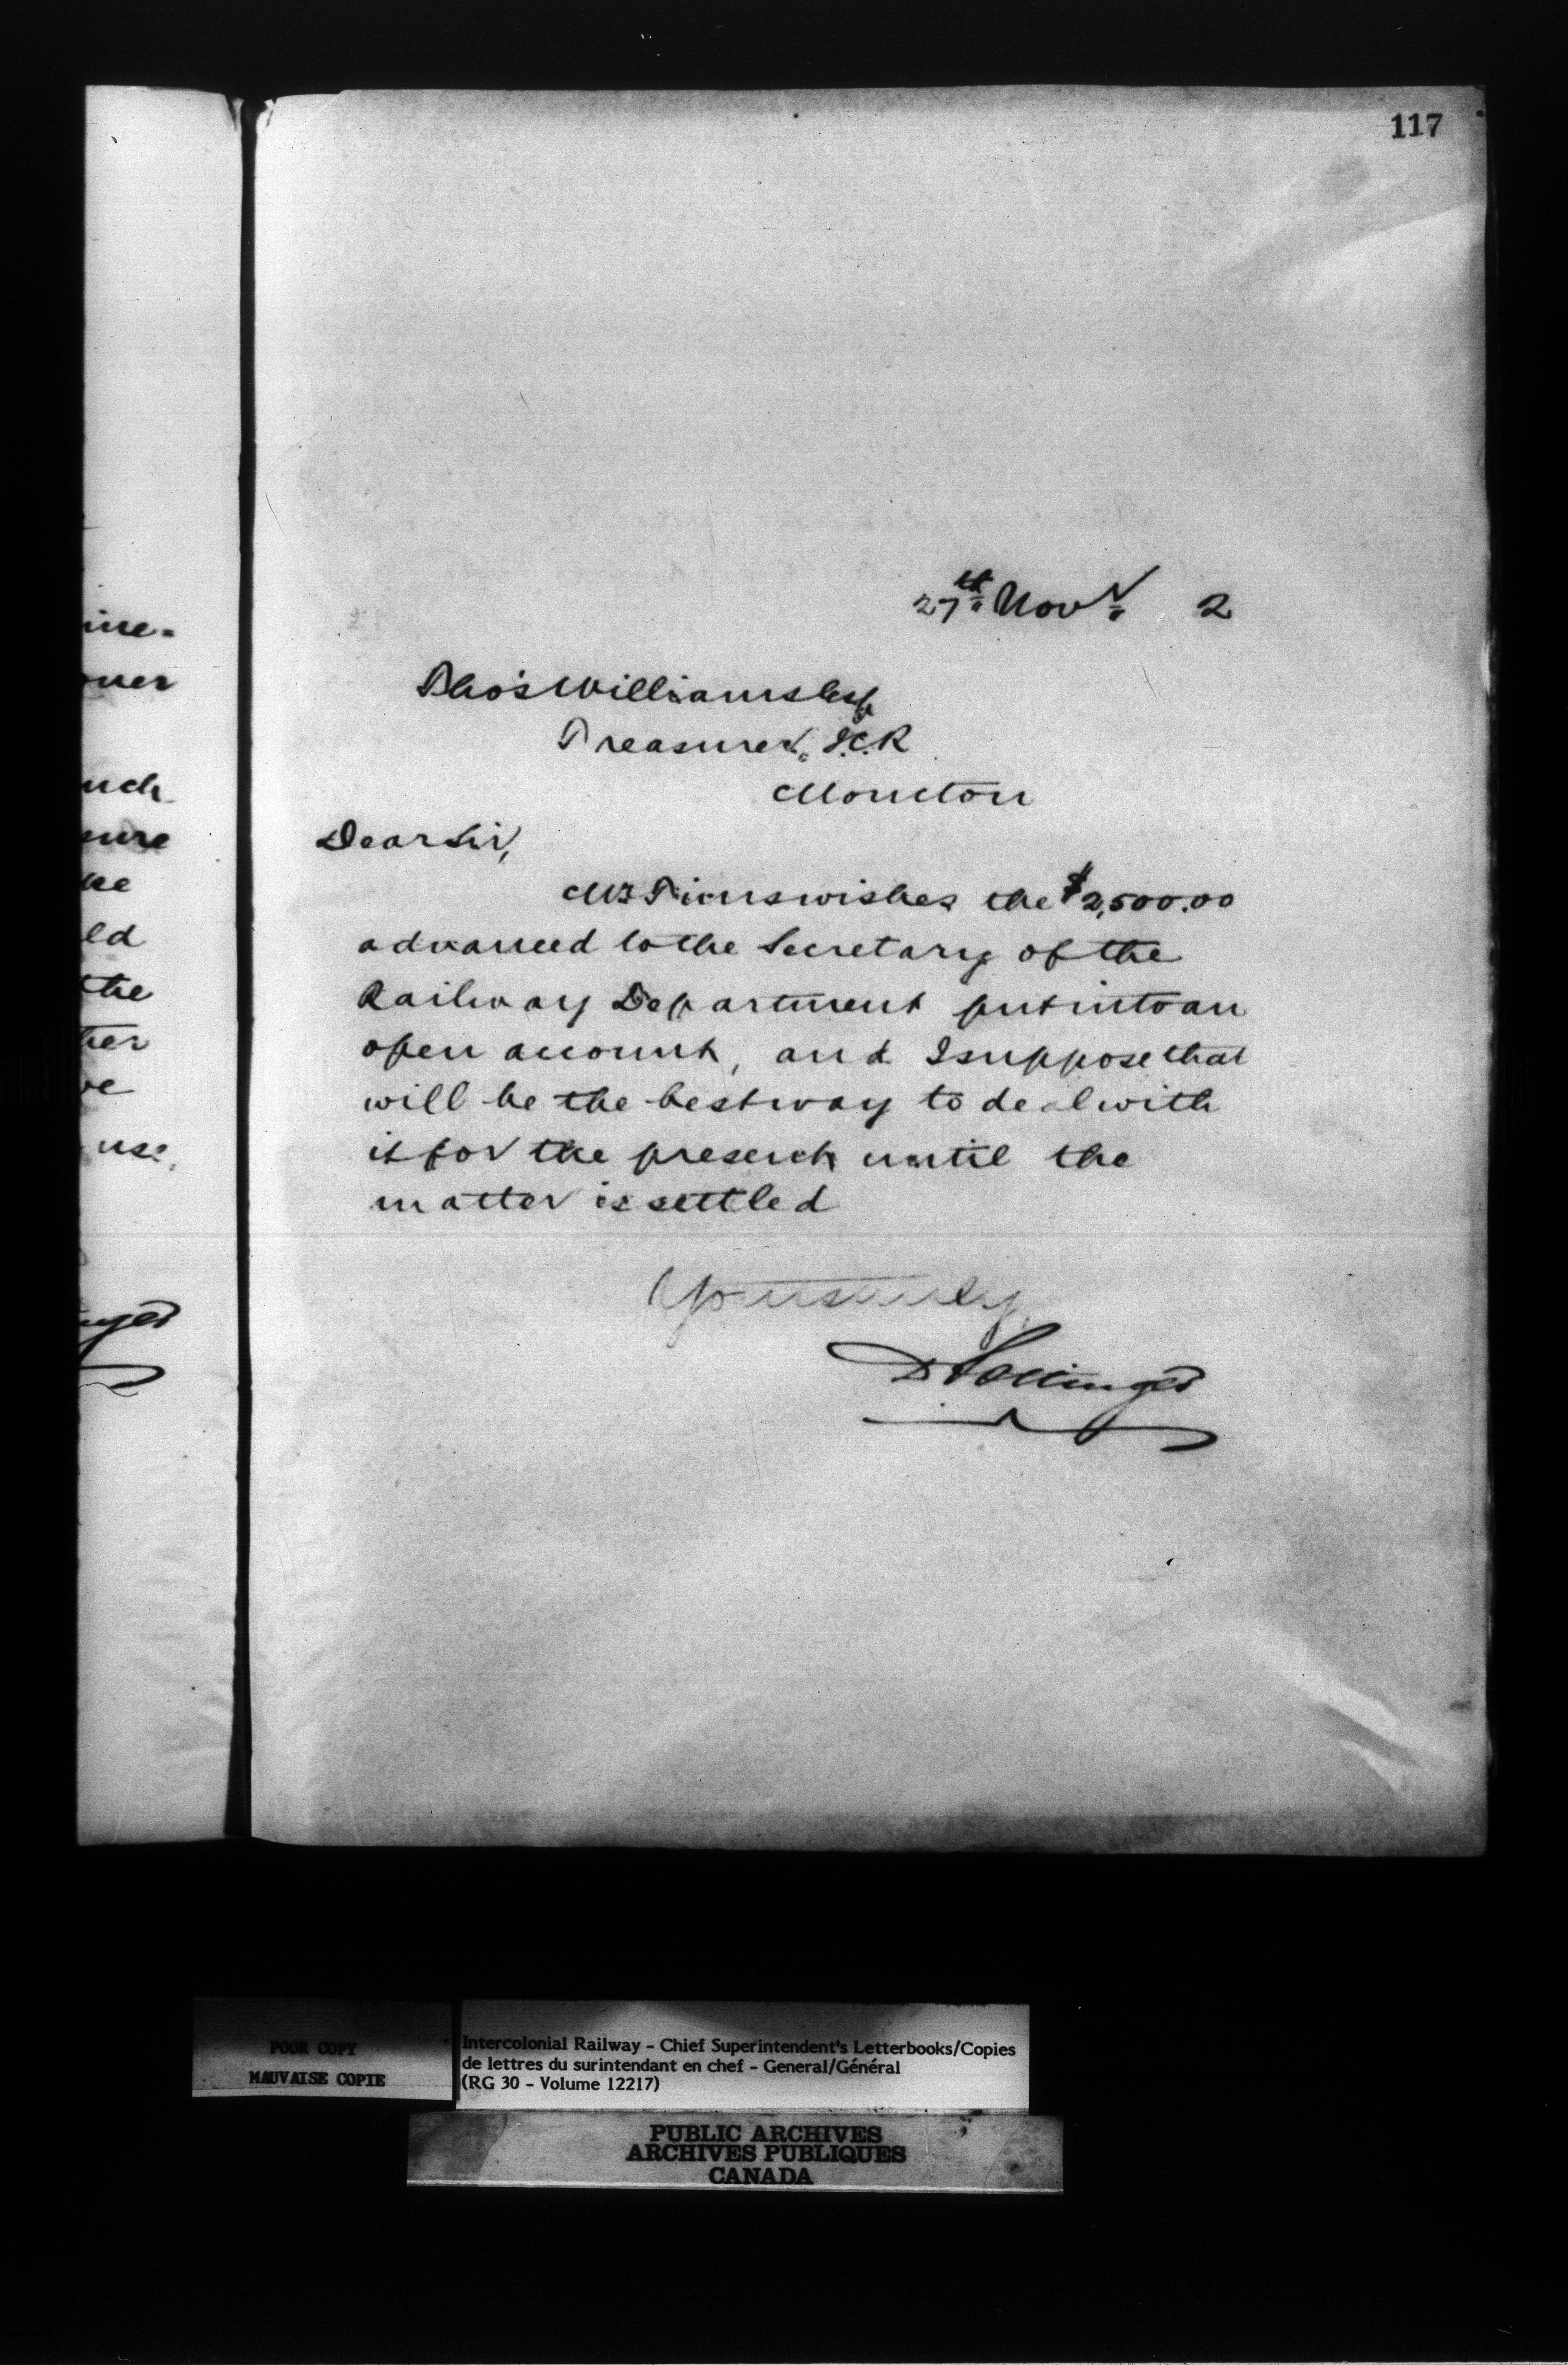 117
27th Novr 2
Thos Williams Esq
Treasurer, I.C.R
Moncton
Dear Sir,
Mr Tims wishes the $2,500.00
advanced to the Secretary of the
Railway Department put into an
open account, and I suppose that
will be the best way to deal with
it for the present until the
matter is settled
Yours truly
D Pottinger
ine-
ner
uch
sure
ke
ld
the
her
ve
use.
nger
POOR COPY
MAUVAISE COPIE
Intercolonial Railway - Chief Superintendent's Letterbooks/Copies
de lettres du surintendant en chef - General/Général
(RG 30 - Volume 12217)
PUBLIC ARCHIVES
ARCHIVES PUBLIQUES
CANADA